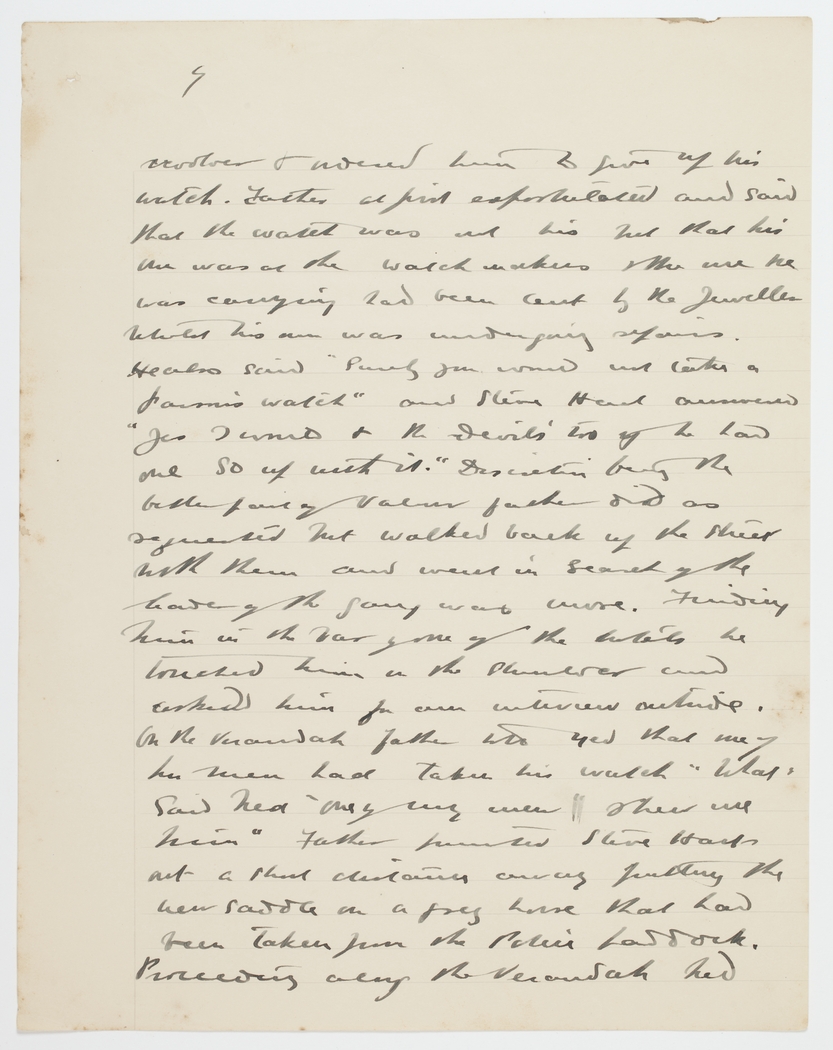 9
revolver & ordered him to give up his
watch. Father at first expostulated and said
that the watch was not his but that his
one was at the watchmakers & the one he
was carrying had been lent by the Jeweller
whilst his own was undergoing repairs.
He also said "Surely you would not take a
Parson's watch" and Steve Hart answered
"Yes I would & the Devils' too if he had
one so up with it." Discretion being the
better part of Valour father did as
requested but walked back up the street
with them and went in search of the
leader of the gang once more. Finding
him in the bar of one of the hotels he
touched him on the shoulder and
asked him for an interview outside.
On the Verandah father told Ned that one of
his men had taken his watch "What"
said Ned "one of my men shew me
him" Father pointed Steve Hart
out a short distance away putting the
new saddle on a grey horse that had
been taken from the Police Paddock.
Proceeding along the Verandah Ned